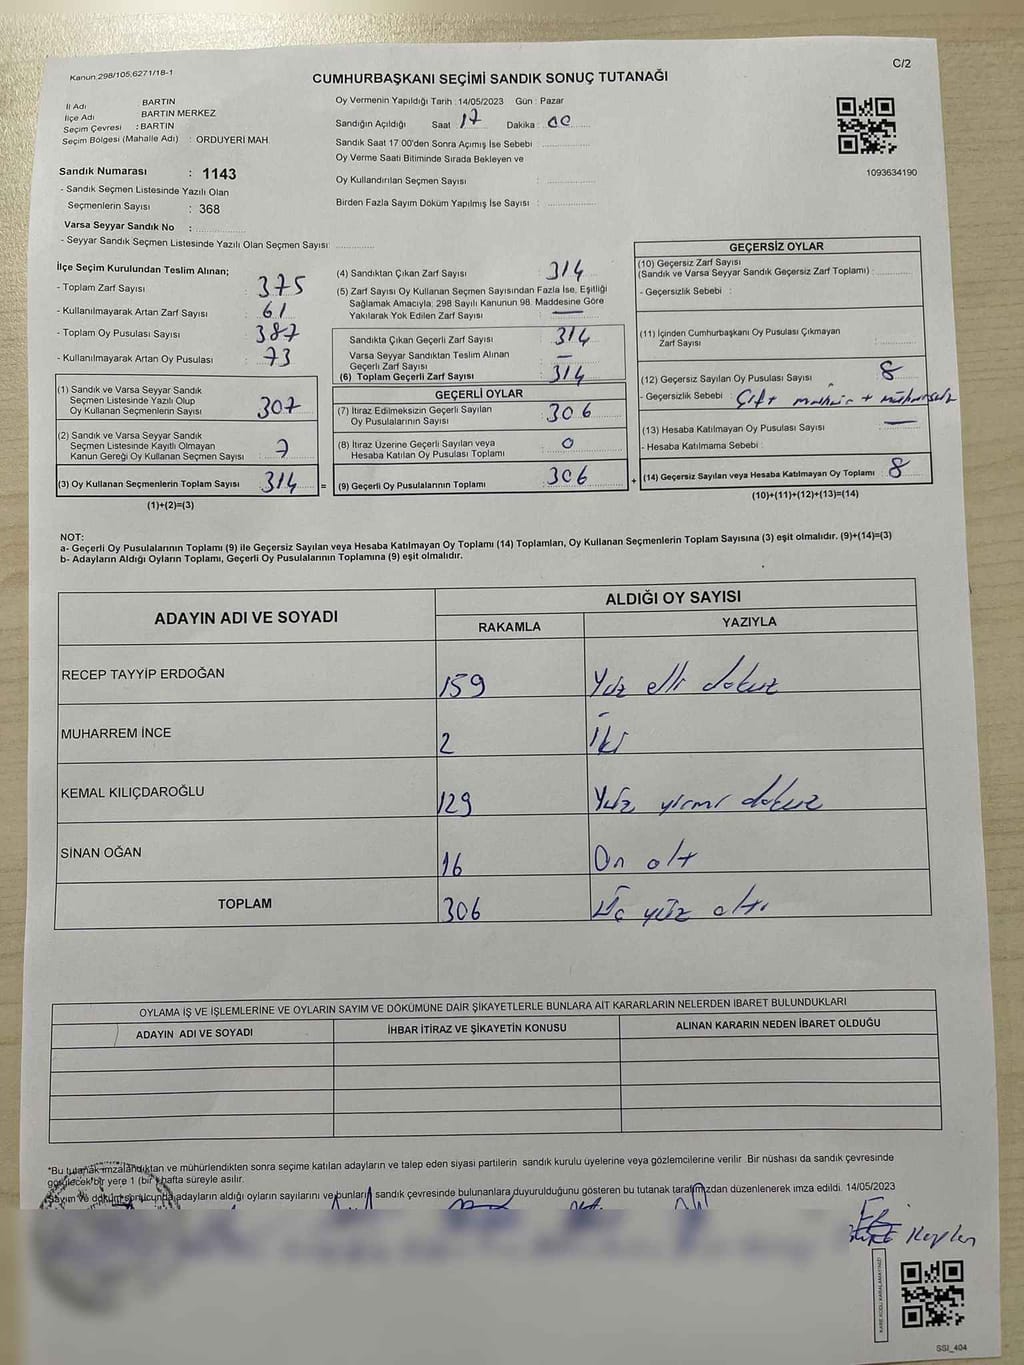 Kanun.298/105,6271/18-1
C/2
CUMHURBAŞKANI SEÇİMİ SANDIK SONUÇ TUTANAĞI
İl Adı BARTIN
İlçe Adı BARTIN MERKEZ
Seçim Çevresi : BARTIN
Seçim Bölgesi (Mahalle Adı) : ORDUYERİ MAH.
Sandık Numarası : 1143
- Sandık Seçmen Listesinde Yazılı Olan
Seçmenlerin Sayısı : 368
Varsa Seyyar Sandık No :
- Seyyar Sandık Seçmen Listesinde Yazılı Olan Seçmen Sayısı:
Oy Vermenin Yapıldığı Tarih :14/05/2023 Gün : Pazar
Sandığın Açıldığı Saat 17 Dakika : 00
Sandık Saat 17 00'den Sonra Açımış İse Sebebi :
Oy Verme Saati Bitiminde Sırada Bekleyen ve
Oy Kullandırılan Seçmen Sayısı :
Birden Fazla Sayım Döküm Yapılmış İse Sayısı :
1093634190
İlçe Seçim Kurulundan Teslim Alınan;
- Toplam Zarf Sayısı : 375
- Kullanılmayarak Artan Zarf Sayısı : 61
- Toplam Oy Pusulası Sayısı : 387
- Kullanılmayarak Artan Oy Pusulası : 73
(1) Sandık ve Varsa Seyyar Sandık
Seçmen Listesinde Yazılı Olup
Oy Kullanan Seçmenlerin Sayısı 307
(2) Sandık ve Varsa Seyyar Sandık
Seçmen Listesinde Kayıtlı Olmayan
Kanun Gereği Oy Kullanan Seçmen Sayısı 7
(3) Oy Kullanan Seçmenlerin Toplam Sayısı 314 =
(1)+(2)=(3)
(4) Sandıktan Çıkan Zarf Sayısı : 314
(5) Zarf Sayısı Oy Kullanan Seçmen Sayısından Fazla İse, Eşitliği
Sağlamak Amacıyla; 298 Sayılı Kanunun 98. Maddesine Göre
Yakılarak Yok Edilen Zarf Sayısı : —
Sandıkta Çıkan Geçerli Zarf Sayısı 314
Varsa Seyyar Sandıktan Teslim Alınan
Geçerli Zarf Sayısı —
(6) Toplam Geçerli Zarf Sayısı 314
GEÇERLİ OYLAR
(7) İtiraz Edilmeksizin Geçerli Sayılan
Oy Pusulalarının Sayısı 306
(8) İtiraz Üzerine Geçerli Sayılan veya
Hesaba Katılan Oy Pusulası Toplamı 0
(9) Geçerli Oy Pusulalarının Toplamı 306 +
GEÇERSİZ OYLAR
(10) Geçersiz Zarf Sayısı
(Sandık ve Varsa Seyyar Sandık Geçersiz Zarf Toplamı) :
- Geçersizlik Sebebi :
(11) İçinden Cumhurbaşkanı Oy Pusulası Çıkmayan
Zarf Sayısı :
(12) Geçersiz Sayılan Oy Pusulası Sayısı : 8
- Geçersizlik Sebebi : Çift mühür + mühürsüz
(13) Hesaba Katılmayan Oy Pusulası Sayısı : —
- Hesaba Katılmama Sebebi :
(14) Geçersiz Sayılan veya Hesaba Katılmayan Oy Toplamı : 8
(10)+(11)+(12)+(13)=(14)
NOT:
a- Geçerli Oy Pusulalarının Toplamı (9) ile Geçersiz Sayılan veya Hesaba Katılmayan Oy Toplamı (14) Toplamları, Oy Kullanan Seçmenlerin Toplam Sayısına (3) eşit olmalıdır. (9)+(14)=(3)
b- Adayların Aldığı Oyların Toplamı, Geçerli Oy Pusulalarının Toplamına (9) eşit olmalıdır.
ADAYIN ADI VE SOYADI ALDIĞI OY SAYISI
RAKAMLA YAZIYLA
RECEP TAYYİP ERDOĞAN 159 Yüz elli dokuz
MUHARREM İNCE 2 İki
KEMAL KILIÇDAROĞLU 129 Yüz yirmi dokuz
SİNAN OĞAN 16 On altı
TOPLAM 306 Üç yüz altı
OYLAMA İŞ VE İŞLEMLERİNE VE OYLARIN SAYIM VE DÖKÜMÜNE DAİR ŞİKAYETLERLE BUNLARA AİT KARARLARIN NELERDEN İBARET BULUNDUKLARI
ADAYIN ADI VE SOYADI İHBAR İTİRAZ VE ŞİKAYETİN KONUSU ALINAN KARARIN NEDEN İBARET OLDUĞU
*Bu tutanak imzalandıktan ve mühürlendikten sonra seçime katılan adayların ve talep eden siyasi partilerin sandık kurulu üyelerine veya gözlemcilerine verilir. Bir nüshası da sandık çevresinde
görülecek bir yere 1 (bir) hafta süreyle asılır.
Sayım ve döküm sonucunda adayların aldığı oyların sayılarını ve bunların sandık çevresinde bulunanlara duyurulduğunu gösteren bu tutanak tarafımızdan düzenlenerek imza edildi. 14/05/2023
Kaplan
KARE KODU KARALAMAYINIZ!
SSI_404